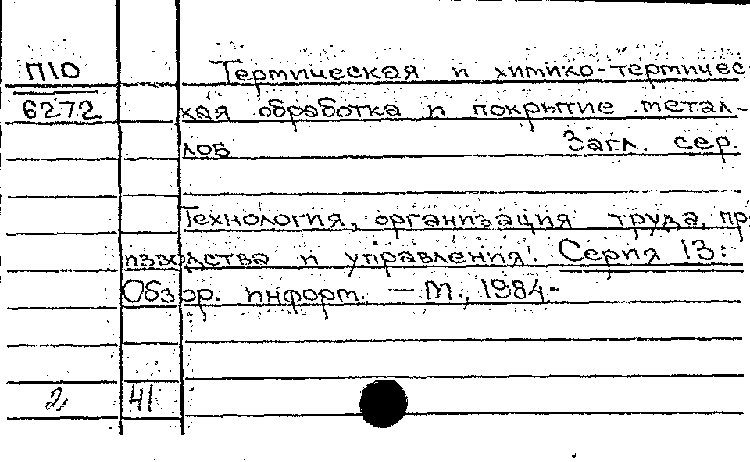 П10
6272
Термическая и химико-термичес
кая обработка и покрытие метал-
лов Загл. сер.
Технология, организация труда, пр
изводства и управления! Серия 13:
Обзор. информ. — М., 1984-
2 41